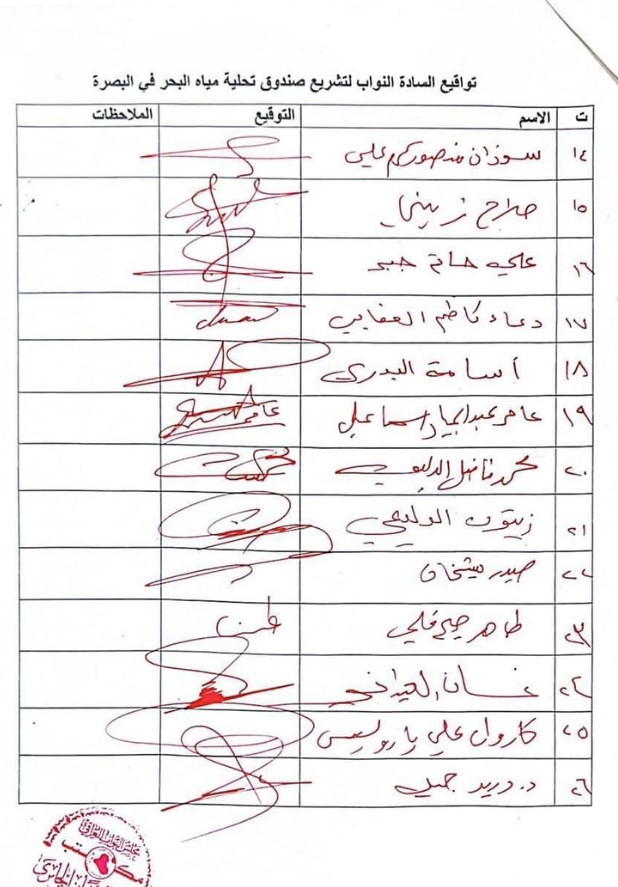 تواقيع السادة النواب لتشريع صندوق تحلية مياه البحر في البصرة
ت الاسم التوقيع الملاحظات
١٤ سوزان منصور علي
١٥ صلاح زيني
١٦ علي حاتم جبر
١٧ دعاء كاظم العقابي
١٨ أسامة البدري
١٩ عامر عبدالجبار اسماعيل عامر
٢٠ محمد فاضل الدليمي
٢١ زيتون الدليمي
٢٢ حيدر
٢٣ طاهر
٢٤ غسان العيداني
٢٥ كاروان علي
٢٦ د. دريد جميل
مجلس النواب العراقي
مكتب